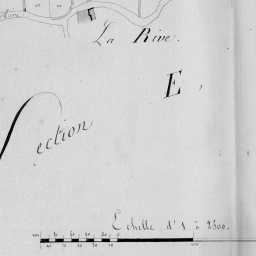 La Rive.
E,
Section
Echelle d' 1 à 2500.